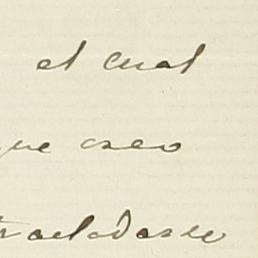 el cual
que creo
trasladarse